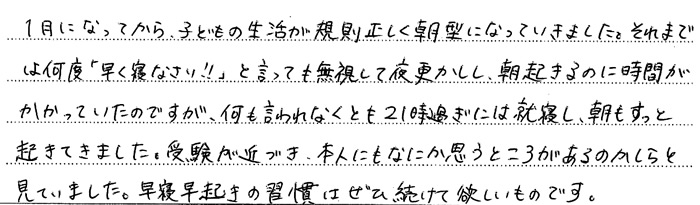 1月になってから、子どもの生活が規則正しく朝型になっていきました。それまで
は何度「早く寝なさい!!」と言っても無視して夜更かしし、朝起きるのに時間が
かかっていたのですが、何も言われなくとも21時過ぎには就寝し、朝もすっと
起きてきました。受験が近づき、本人にもなにか思うところがあるのかしらと
見ていました。早寝早起きの習慣はぜひ続けて欲しいものです。